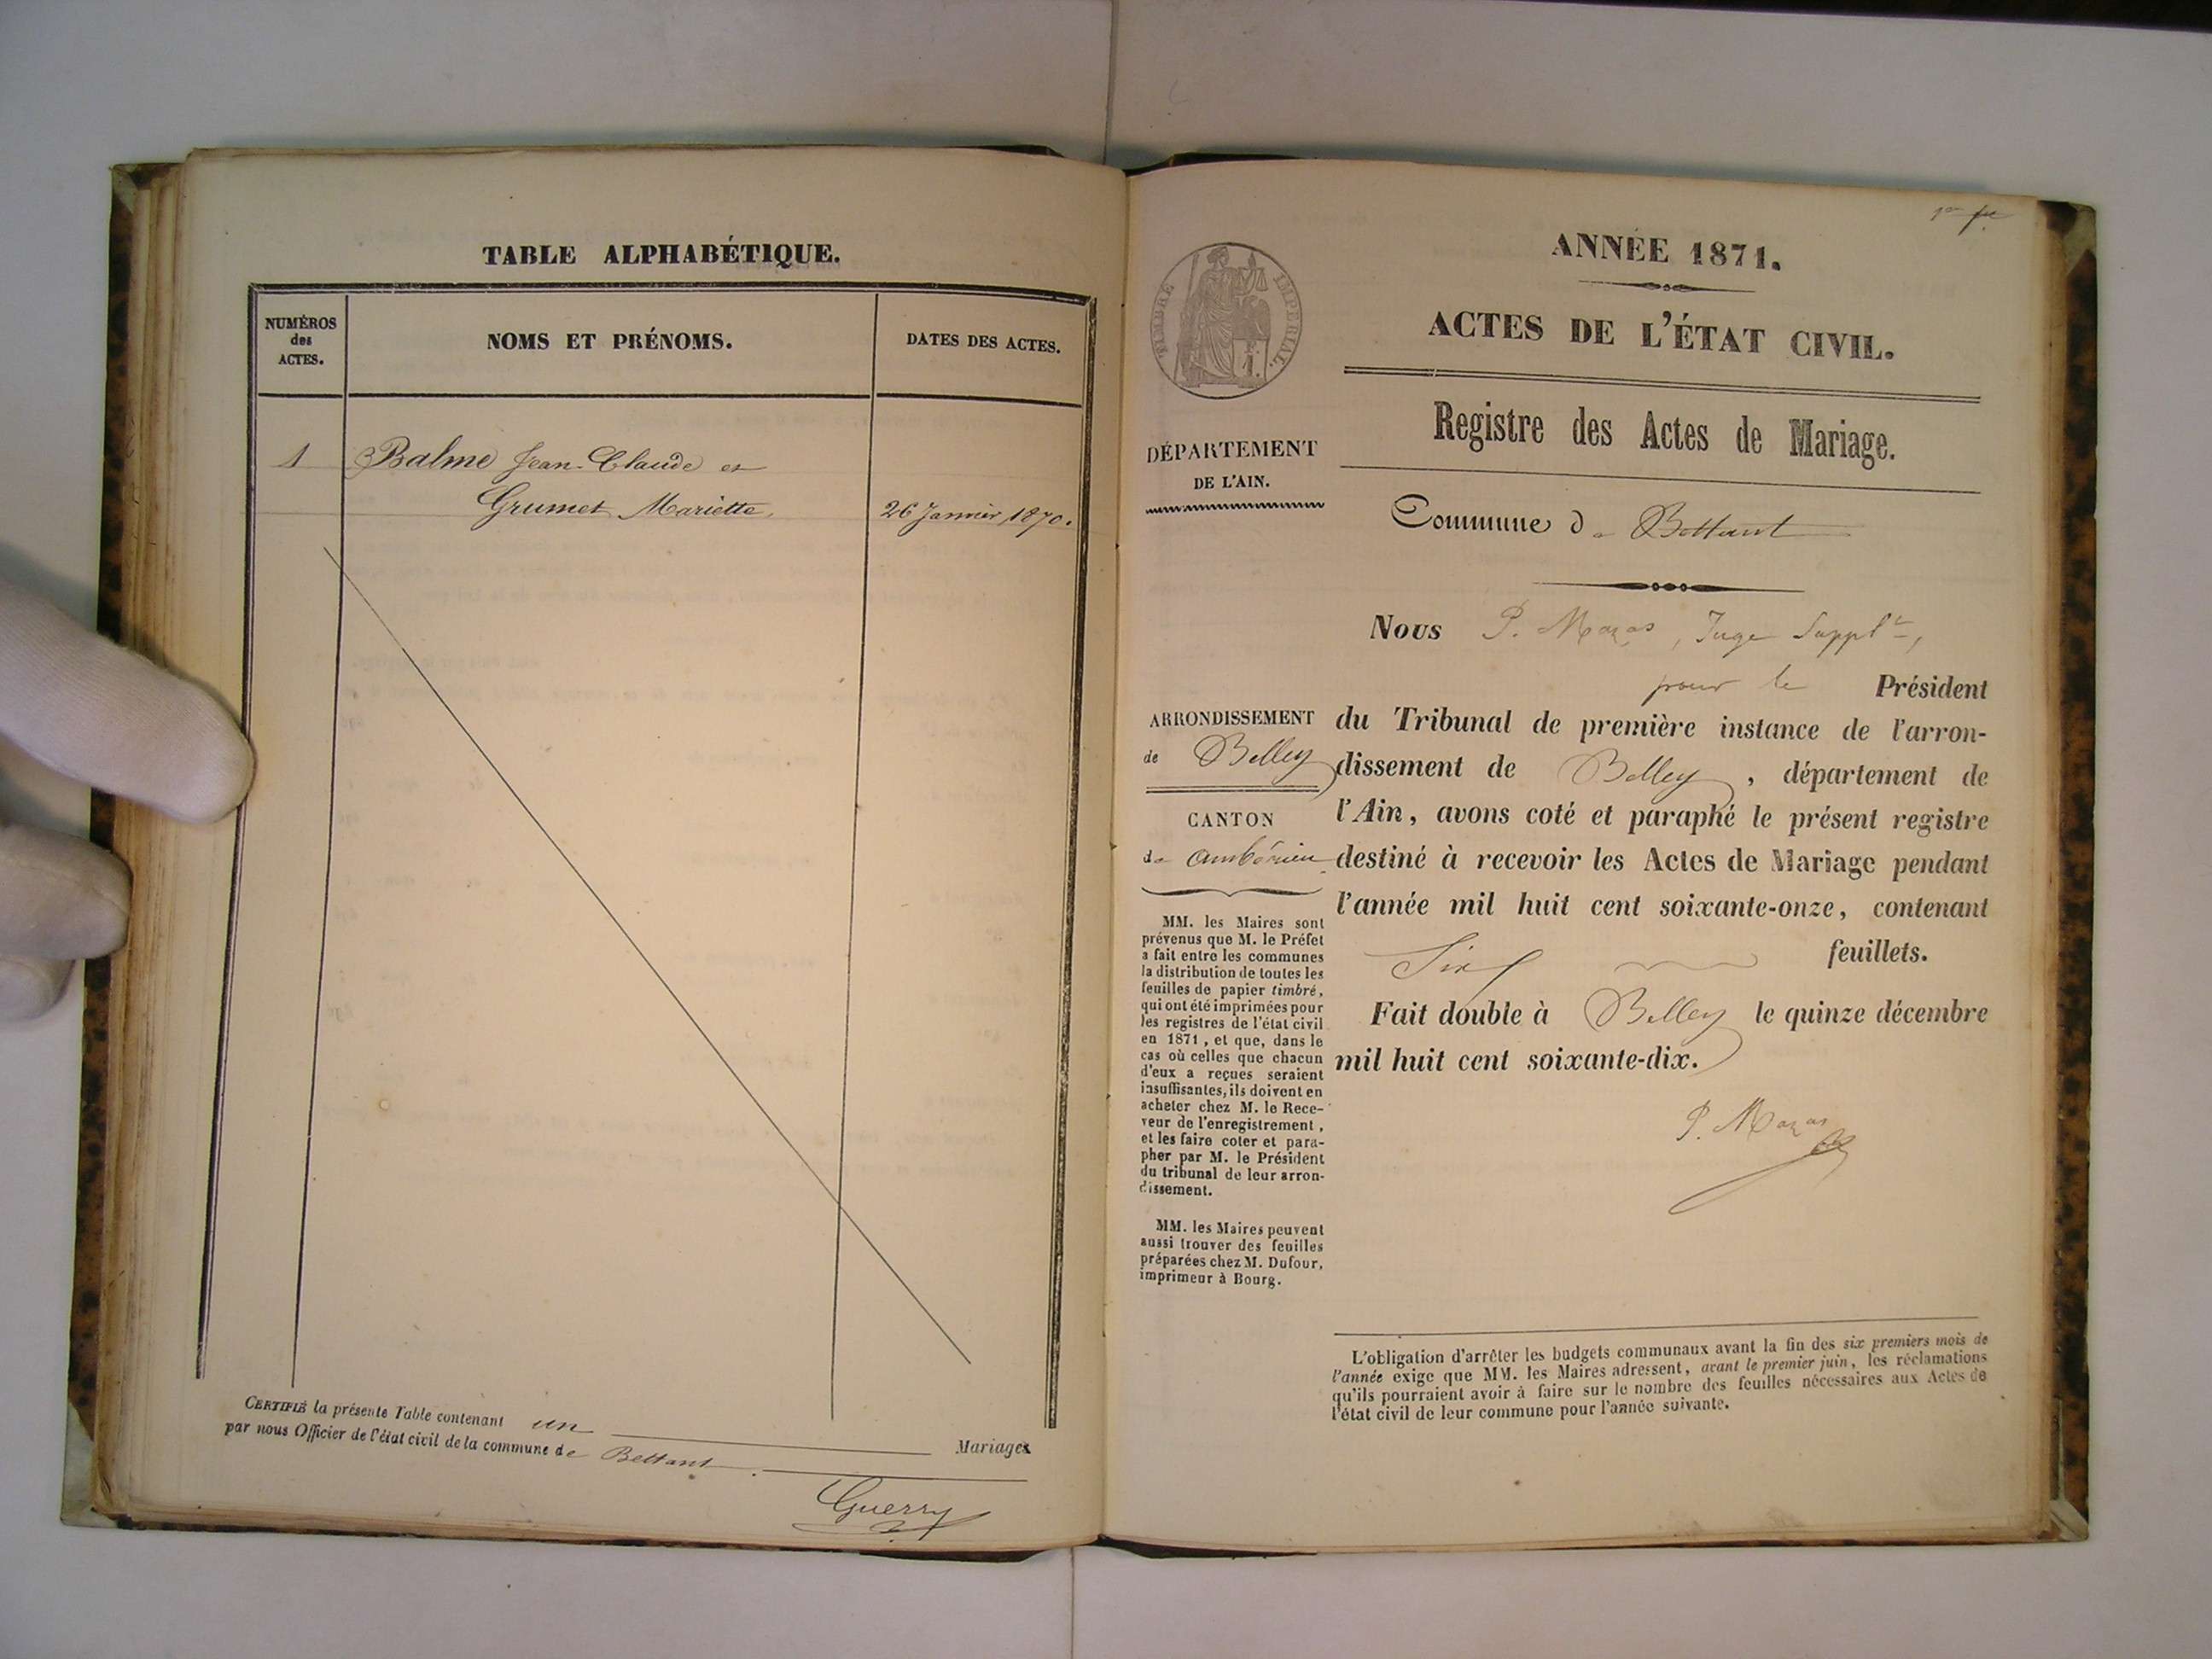 TABLE ALPHABÉTIQUE.
NUMÉROS
des
ACTES.
NOMS ET PRÉNOMS.
DATES DES ACTES.
1 Balme Jean-Claude et
Grumet Mariette, 26 Janvier 1870.
CERTIFIÉ la présente Table contenant un Mariages
par nous Officier de l'état civil de la commune de Bettant.
Guerry
TIMBRE IMPÉRIAL.
1.
DÉPARTEMENT
DE L'AIN.
ARRONDISSEMENT
de Belley
CANTON
de ambérieu
MM. les Maires sont
prévenus que M. le Préfet
a fait entre les communes
la distribution de toutes les
feuilles de papier timbré,
qui ont été imprimées pour
les registres de l'état civil
en 1871, et que, dans le
cas où celles que chacun
d'eux a reçues seraient
insuffisantes, ils doivent en
acheter chez M. le Rece-
veur de l'enregistrement,
et les faire coter et para-
pher par M. le Président
du tribunal de leur arron-
dissement.
MM. les Maires peuvent
aussi trouver des feuilles
préparées chez M. Dufour,
imprimeur à Bourg.
ANNÉE 1871.
ACTES DE L'ÉTAT CIVIL.
Registre des Actes de Mariage.
Commune de Bettant
Nous P. Mazas, Juge Supplt,
pour le Président
du Tribunal de première instance de l'arron-
dissement de Belley, département de
l'Ain, avons coté et paraphé le présent registre
destiné à recevoir les Actes de Mariage pendant
l'année mil huit cent soixante-onze, contenant
Six feuillets.
Fait double à Belley le quinze décembre
mil huit cent soixante-dix.
P. Mazas
L'obligation d'arrêter les budgets communaux avant la fin des six premiers mois de
l'année exige que MM. les Maires adressent, avant le premier juin, les réclamations
qu'ils pourraient avoir à faire sur le nombre des feuilles nécessaires aux Actes de
l'état civil de leur commune pour l'année suivante.